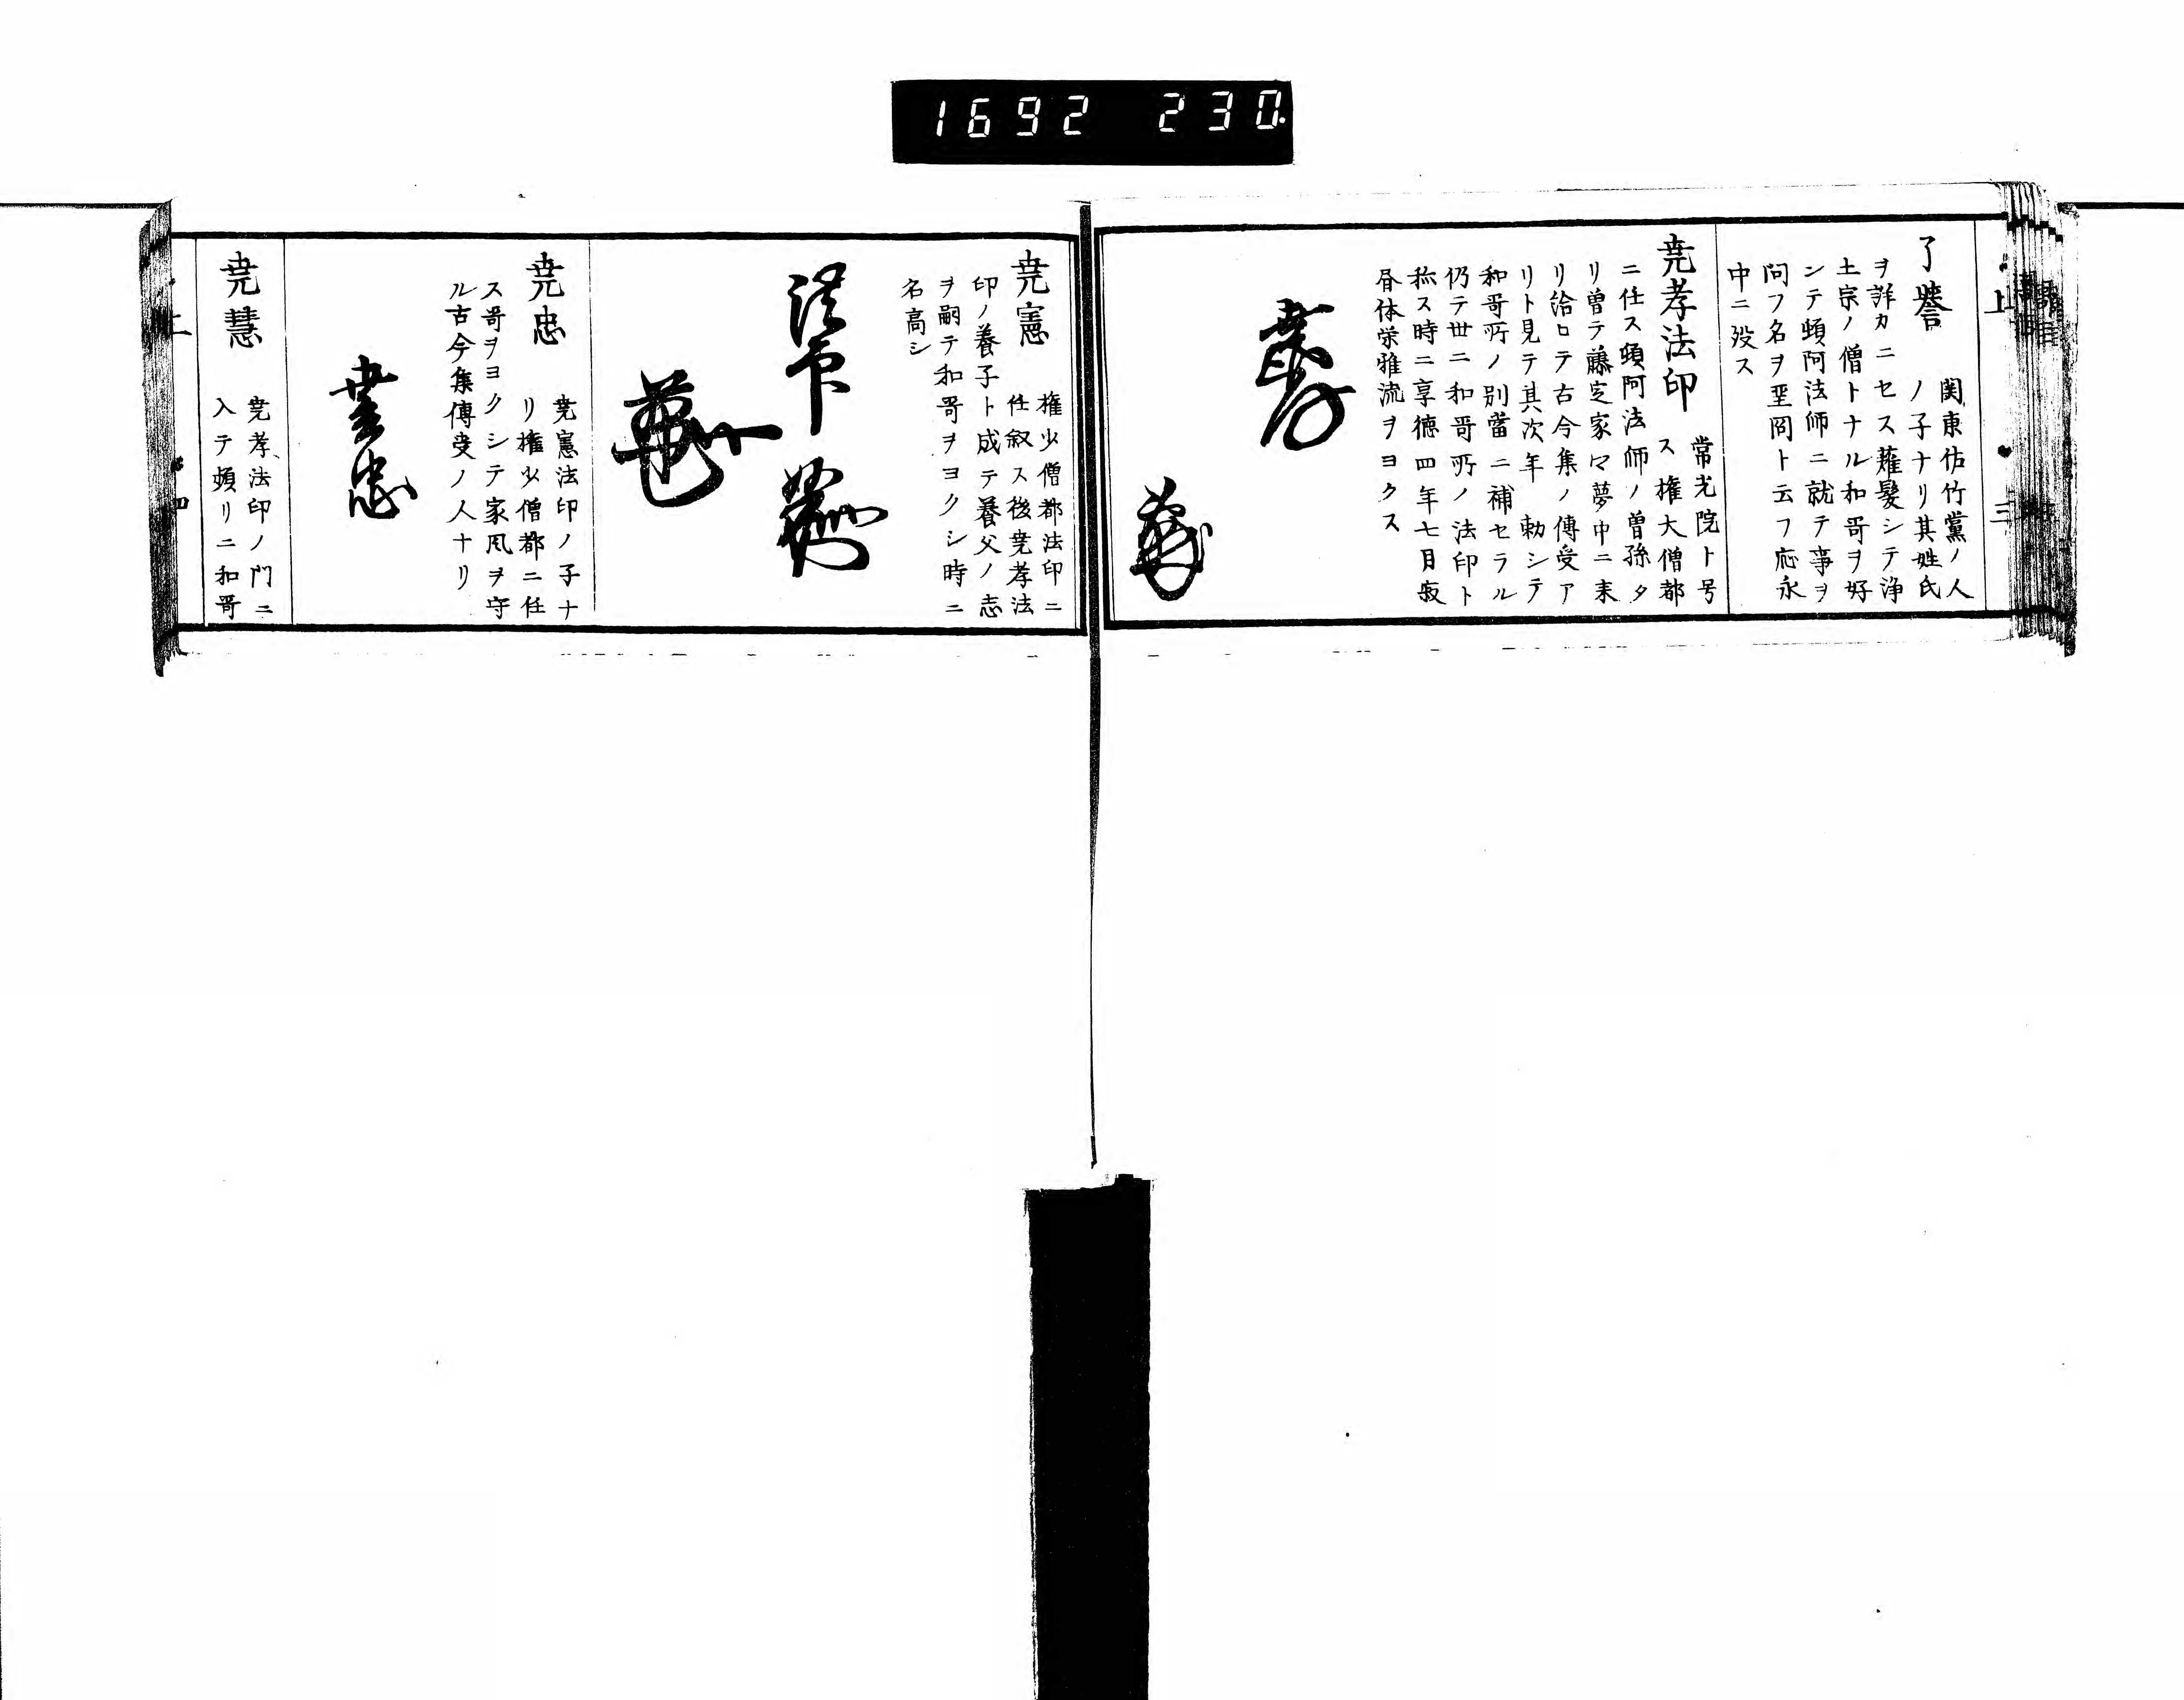 1692 230
上 三
了譽 関東佐竹黨ノ人
ノ子ナリ其姓氏
ヲ詳カニセス薙髪シテ浄
土宗ノ僧トナル和哥ヲ好
ンテ頓阿法師ニ就テ事ヲ
問フ名ヲ聖冏ト云フ応永
中ニ歿ス
尭孝法印 常光院ト号
ス権大僧都
ニ任ス頓阿法師ノ曽孫タ
リ曽テ藤定家ヲ夢中ニ来
リ給ロテ古今集ノ傳受ア
リト見テ其次年勅シテ
和哥所ノ別當ニ補セラル
仍テ世ニ和哥所ノ法印ト
称ス時ニ享徳四年七月寂
昏体栄雅流ヲヨクス
尭孝
尭憲 権少僧都法印ニ
任叙ス後尭孝法
印ノ養子ト成テ養父ノ志
ヲ嗣テ和哥ヲヨクシ時ニ
名高シ
法印
尭忠 尭憲法印ノ子ナ
リ権少僧都ニ任
ス哥ヲヨクシテ家風ヲ守
ル古今集傳受ノ人ナリ
尭忠
尭慧 尭孝法印ノ門ニ
入テ頻リニ和哥
上 四